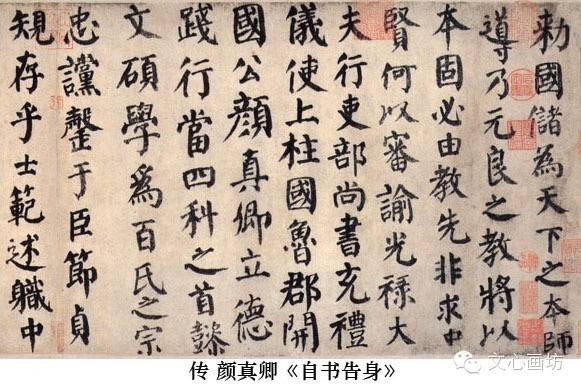 勅國儲為天下之本師
導乃元良之教將以
本固必由教先非求中
賢何以審諭光祿大
夫行吏部尚書充禮
儀使上柱國魯郡開
國公顔真卿立德
踐行當四科之首懿
文碩學為百氏之宗
忠讜罄于臣節貞
規存乎士範述職中
传 颜真卿《自书告身》
文心画坊